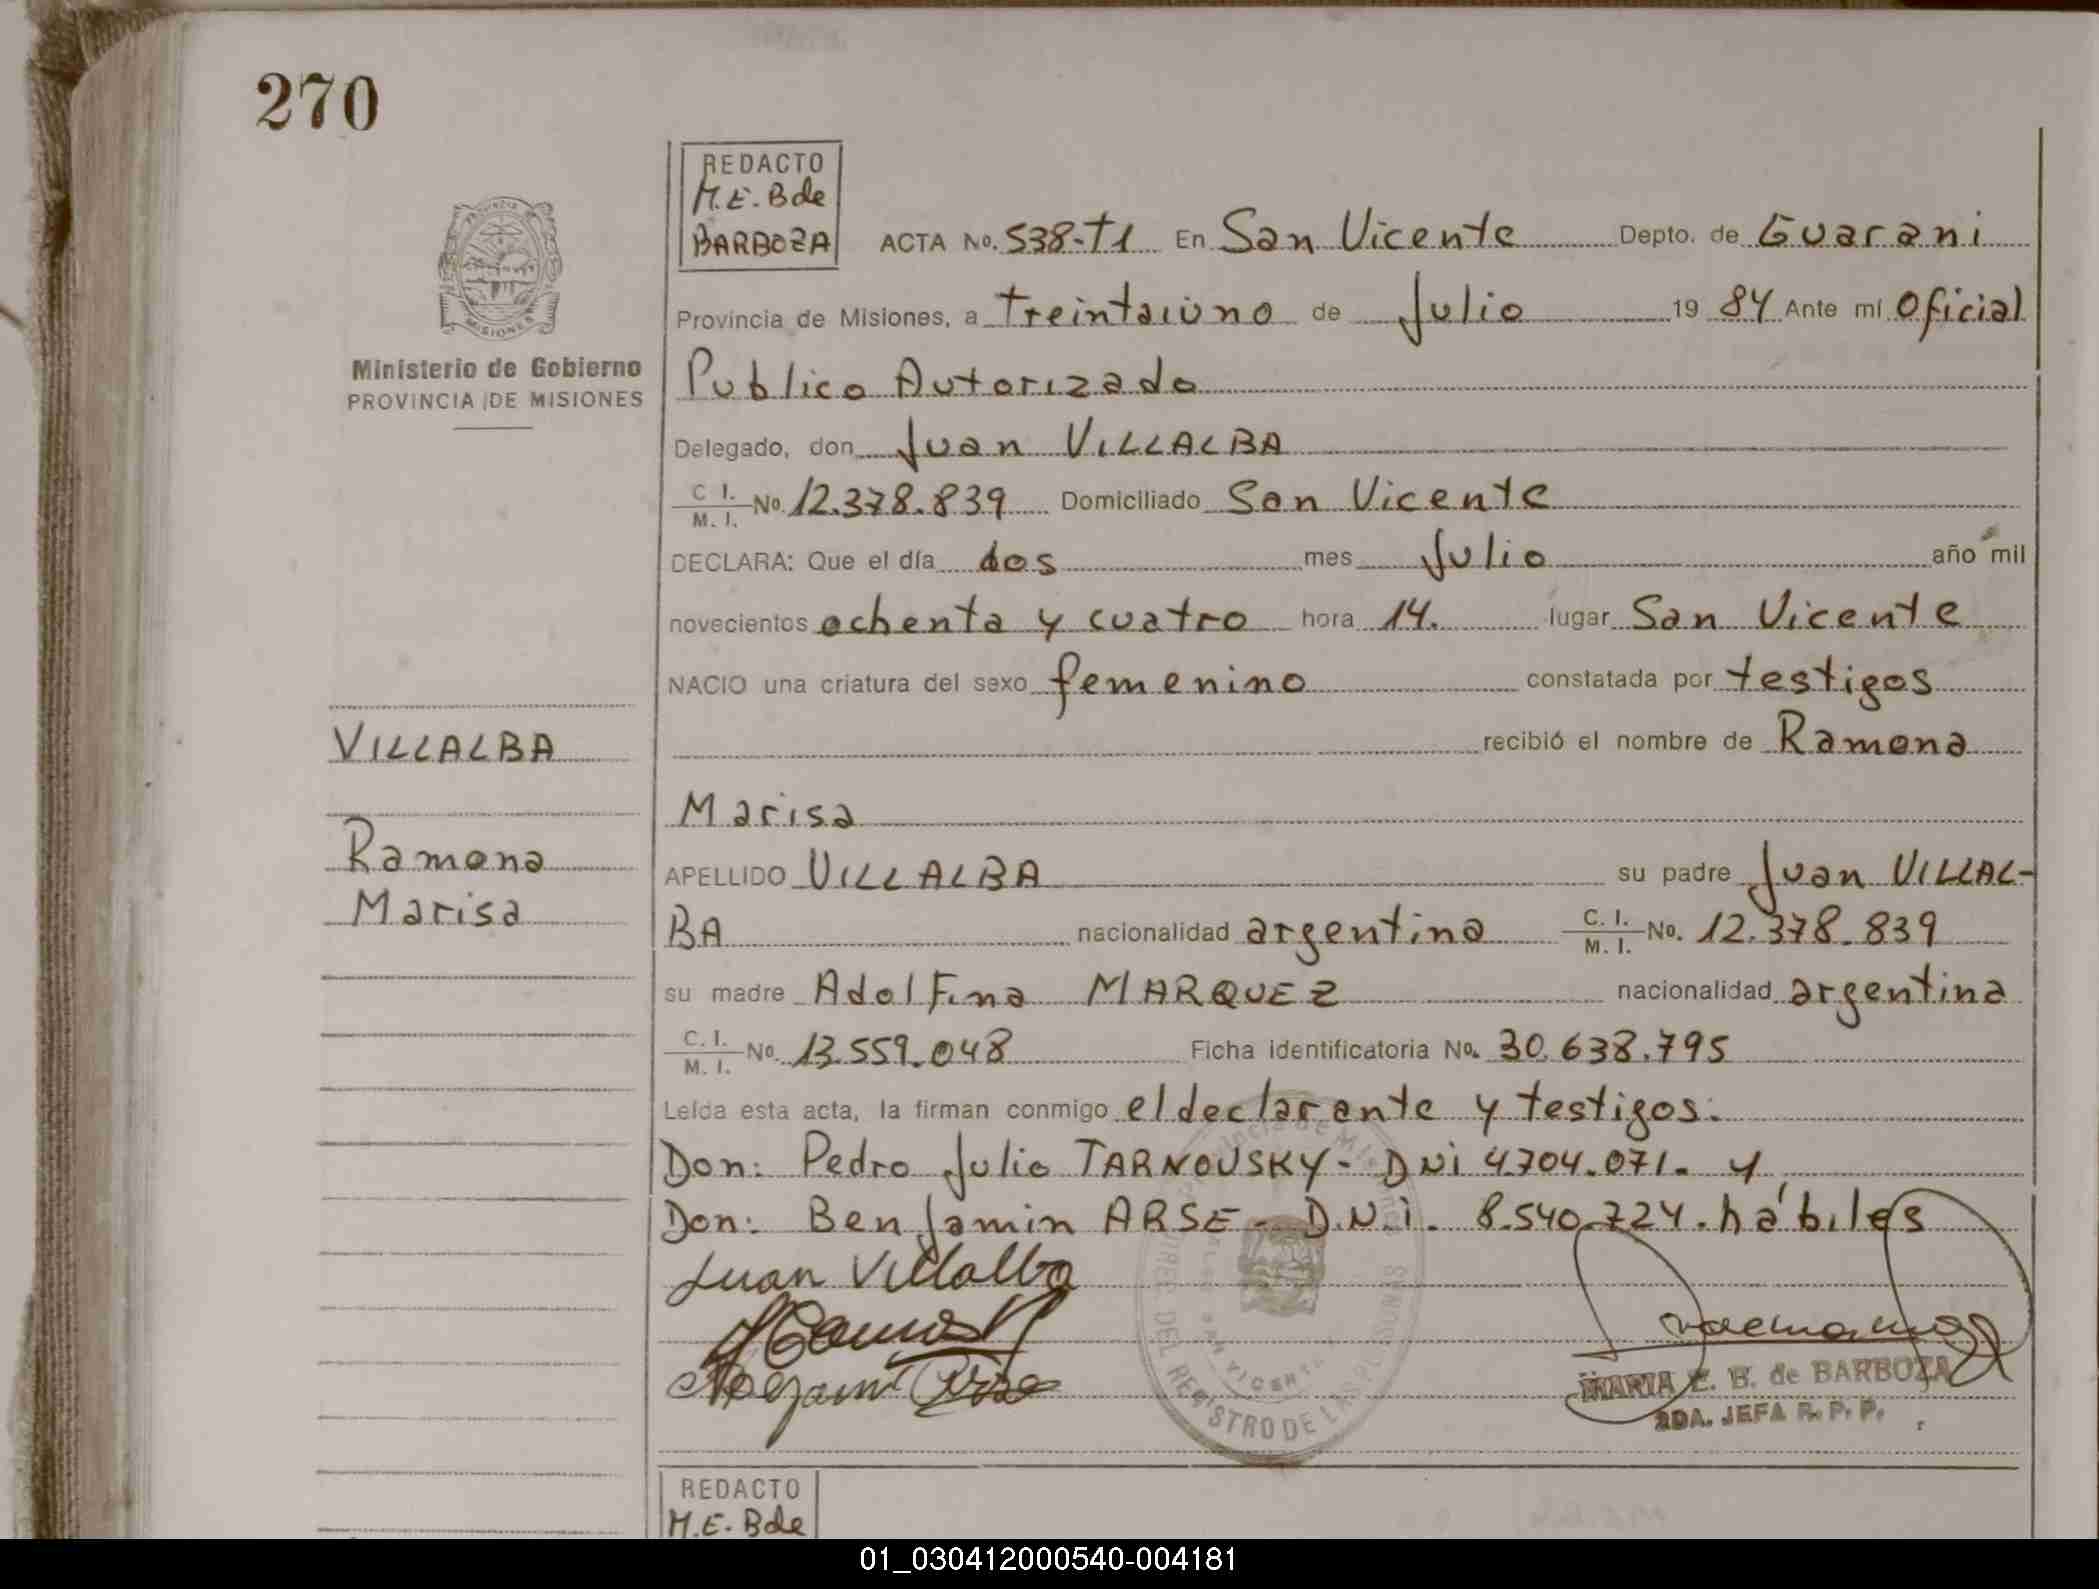 270
REDACTO
M.E. B de
BARBOZA
ACTA No. 538-T1 En San Vicente Depto. de Guarani
Provincia de Misiones, a treintaiuno de Julio 19 84 Ante mí Oficial
Ministerio de Gobierno
PROVINCIA DE MISIONES
Publico Autorizado
Delegado, don Juan VILLALBA
C I. / M. I. No. 12.378.839 Domiciliado San Vicente
DECLARA: Que el día dos mes Julio año mil
novecientos ochenta y cuatro hora 14. lugar San Vicente
NACIO una criatura del sexo femenino constatada por testigos
VILLALBA
recibió el nombre de Ramona
Marisa
Ramona
Marisa
APELLIDO VILLALBA su padre Juan VILLAL-
BA nacionalidad argentina C. I. / M. I. No. 12.378.839
su madre Adolfina MARQUEZ nacionalidad argentina
C. I. / M. I. No. 13.559.048 Ficha identificatoria No. 30.638.795
Leída esta acta, la firman conmigo el declarante y testigos:
Don: Pedro Julio TARNOUSKY- DNi 4.704.071. y
Don: Benjamin ARSE- D.N.i. 8.540.724. hábiles
Juan Villalba
MARIA E. B. de BARBOZA
2DA. JEFA R. P. P.
REDACTO
M.E. B de
01_030412000540-004181